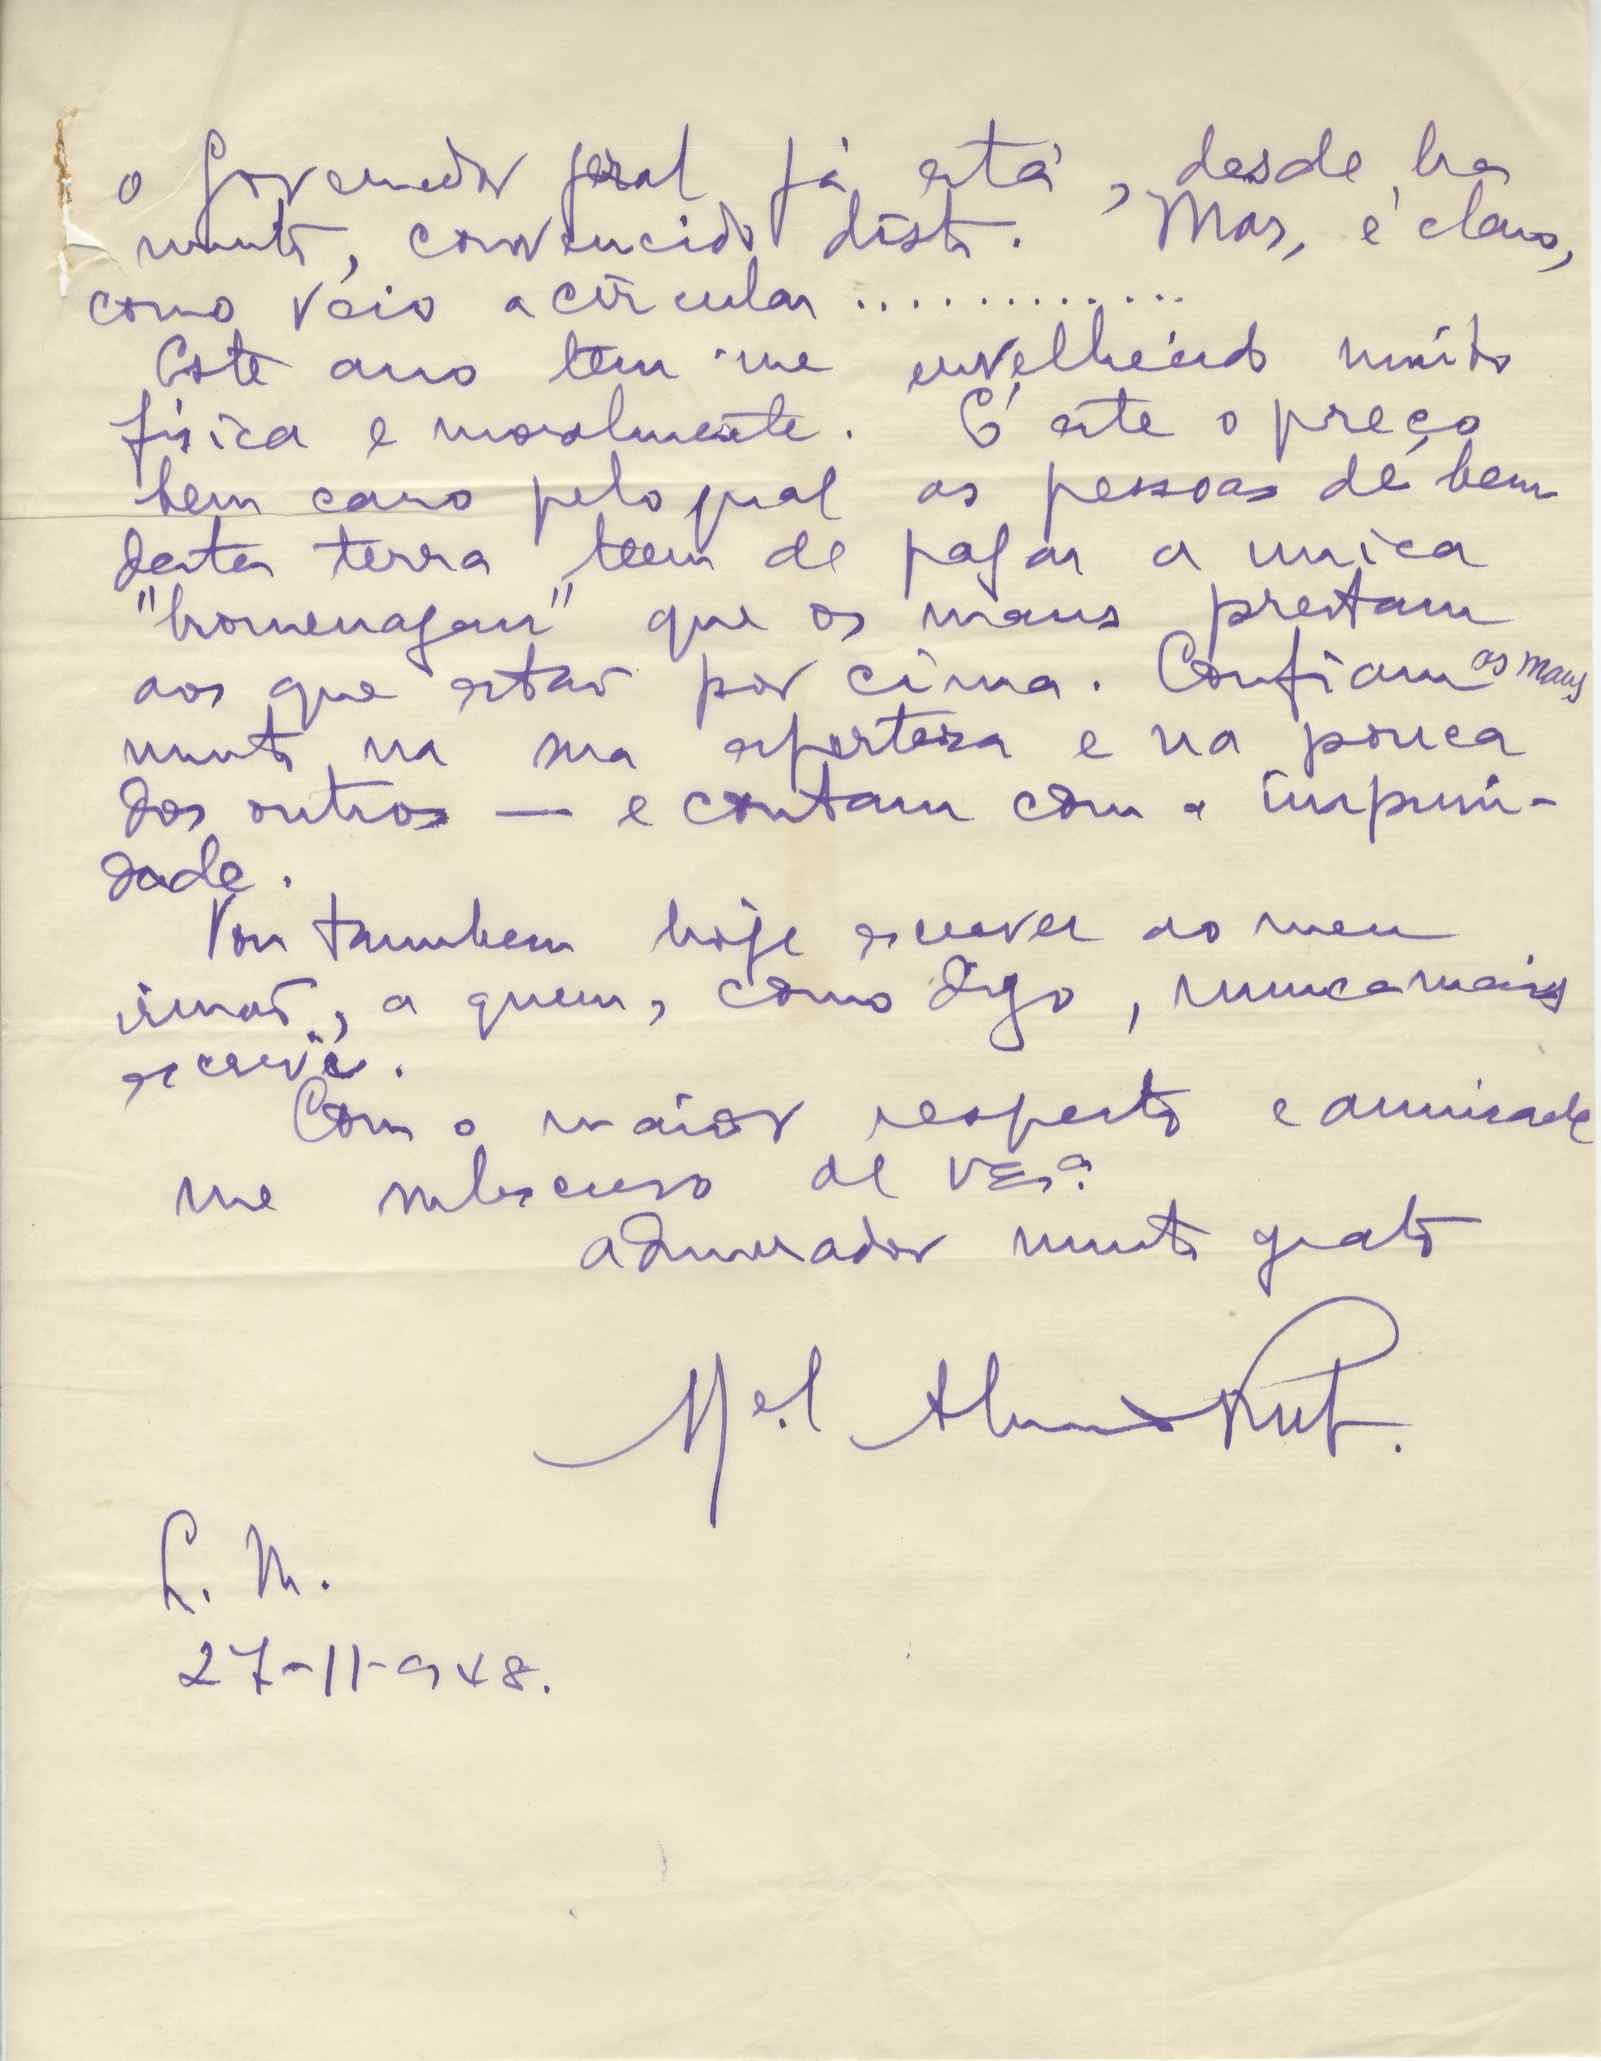 o Governador geral já está, desde ha
muito, convencido disto. Mas, é claro,
como veio a circular ............
Este ano tem-me envelhecido muito
fisica e moralmente. É este o preço
bem caro pelo qual as pessoas de bem
desta terra teem de pagar a unica
"homenagem" que os maus prestam
aos que estão por cima. Confiam os maus
muito na sua esperteza e na pouca
dos outros — e contam com a impuni-
dade.
Vou tambem hoje escrever ao meu
irmão, a quem, como digo, nunca mais
escrevi.
Com o maior respeito e amizade
me subscrevo de V Exª
admirador muito grato
Mel.
L. M.
27-11-948.